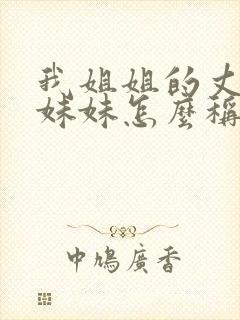 我姐姐的丈
妹妹怎麼稱
中鳩廣香